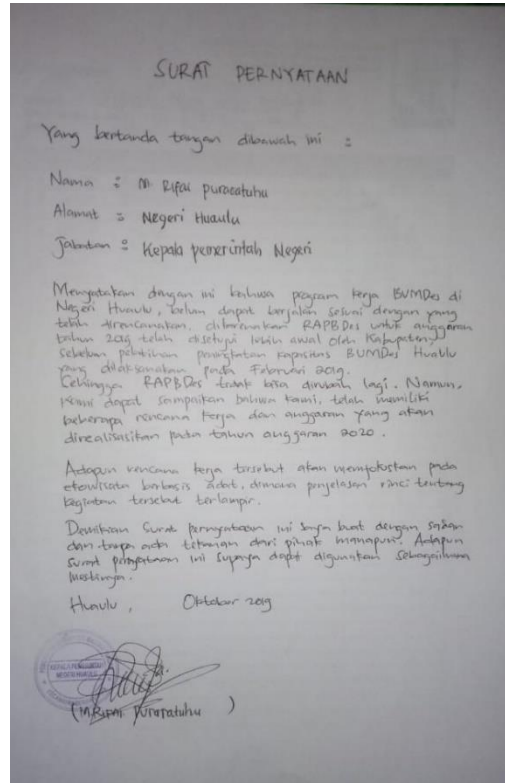 SURAT PERNYATAAN
Yang bertanda tangan dibawah ini :
Nama : M Rifai Puraratuhu
Alamat : Negeri Huaulu
Jabatan : Kepala pemerintah Negeri
Menyatakan dengan ini bahwa program kerja BUMDes di
Negeri Huaulu, belum dapat berjalan sesuai dengan yang
telah direncanakan, dikarenakan RAPBDes untuk anggaran
tahun 2019 telah disetujui lebih awal oleh Kabupaten
sebelum pelatihan peningkatan kapasitas BUMDes Huaulu
yang dilaksanakan pada Februari 2019.
Sehingga RAPBDes tidak bisa dirubah lagi. Namun,
kami dapat sampaikan bahwa kami, telah memiliki
beberapa rencana kerja dan anggaran yang akan
direalisasikan pada tahun anggaran 2020.
Adapun rencana kerja tersebut akan memfokuskan pada
ekowisata berbasis adat, dimana penjelasan rinci tentang
kegiatan tersebut terlampir.
Demikian surat pernyataan ini saya buat dengan sadar
dan tanpa ada tekanan dari pihak manapun. Adapun
surat pernyataan ini supaya dapat digunakan sebagaimana
mestinya.
Huaulu, Oktober 2019
KEPALA PEMERINTAH
NEGERI HUAULU
(M.Rifai Puraratuhu)